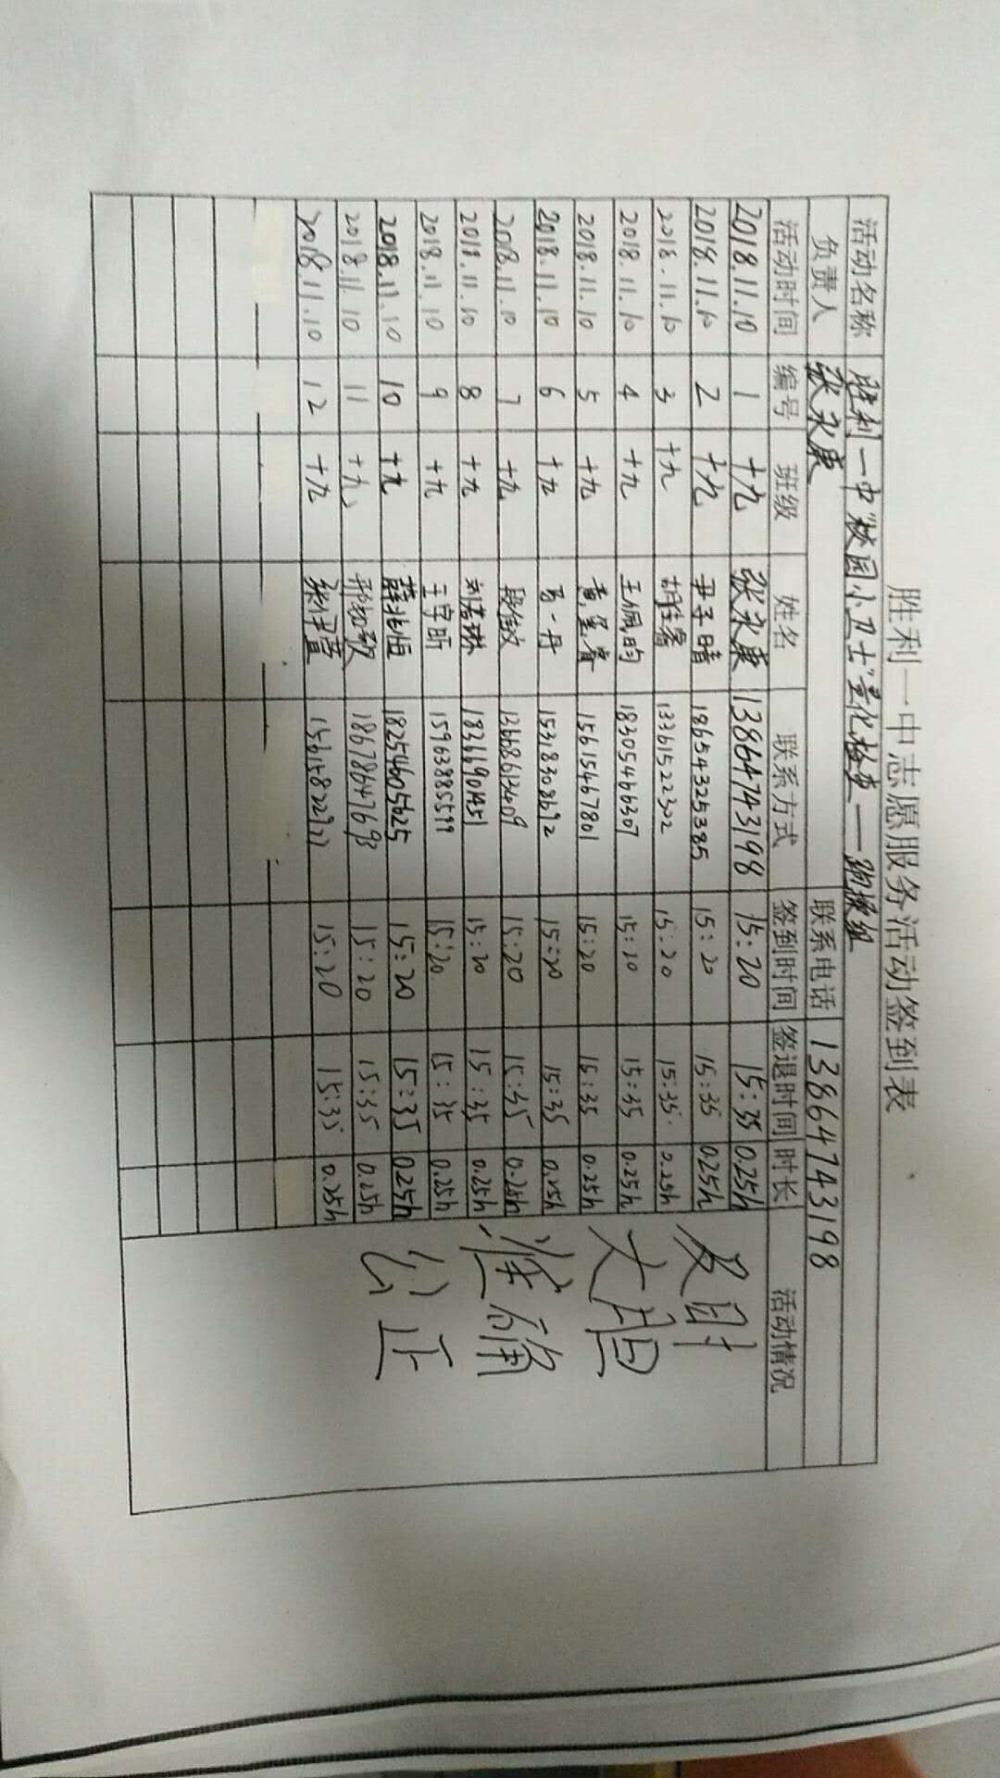 胜利一中志愿服务活动签到表
活动名称 胜利一中"校园小卫士"量化检查——跑操组
负责人 张永康 联系电话 13864743198
活动时间 编号 班级 姓名 联系方式 签到时间 签退时间 时长 活动情况
2018.11.10 1 十九 张永康 13864743198 15:20 15:35 0.25h
2018.11.10 2 十九 尹子晴 18654325385 15:20 15:35 0.25h
2018.11.10 3 十九 13361522302 15:20 15:35 0.25h
2018.11.10 4 十九 王佩昀 18305466307 15:20 15:35 0.25h
2018.11.10 5 十九 15615467801 15:20 15:35 0.25h
2018.11.10 6 十九 15318308692 15:20 15:35 0.25h
2018.11.10 7 十九 13468612409 15:20 15:35 0.25h
2018.11.10 8 十九 刘若琳 18366901451 15:20 15:35 0.25h
2018.11.10 9 十九 王宇昕 15:20 15:35 0.25h
2018.11.10 10 十九 18254605625 15:20 15:35 0.25h
2018.11.10 11 十九 18678647698 15:20 15:35 0.25h
2018.11.10 12 十九 15:20 15:35 0.25h
及时
大胆
准确
公正